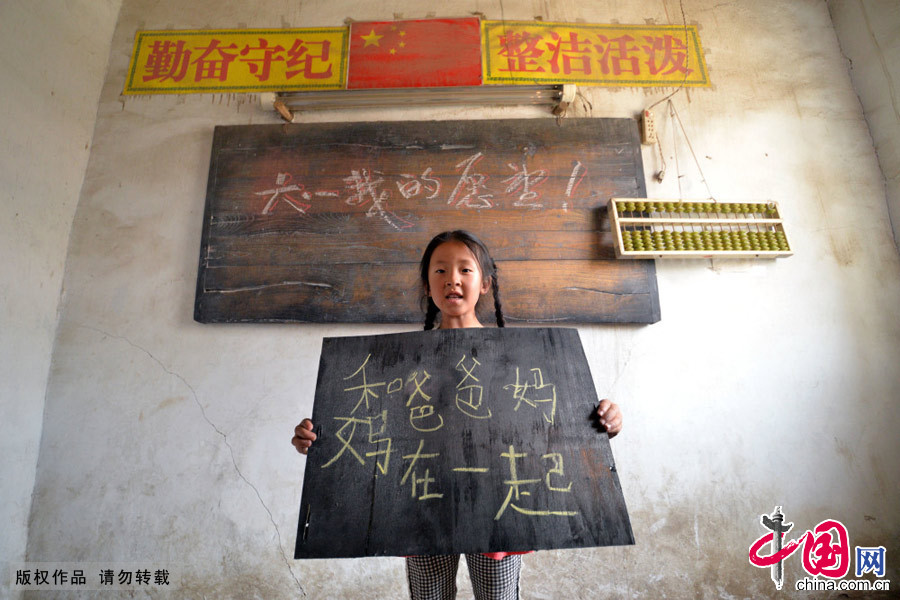 勤奋守纪 整洁活泼
六一我的愿望！
和爸爸妈
妈在一起
版权作品 请勿转载
中国网
china.com.cn